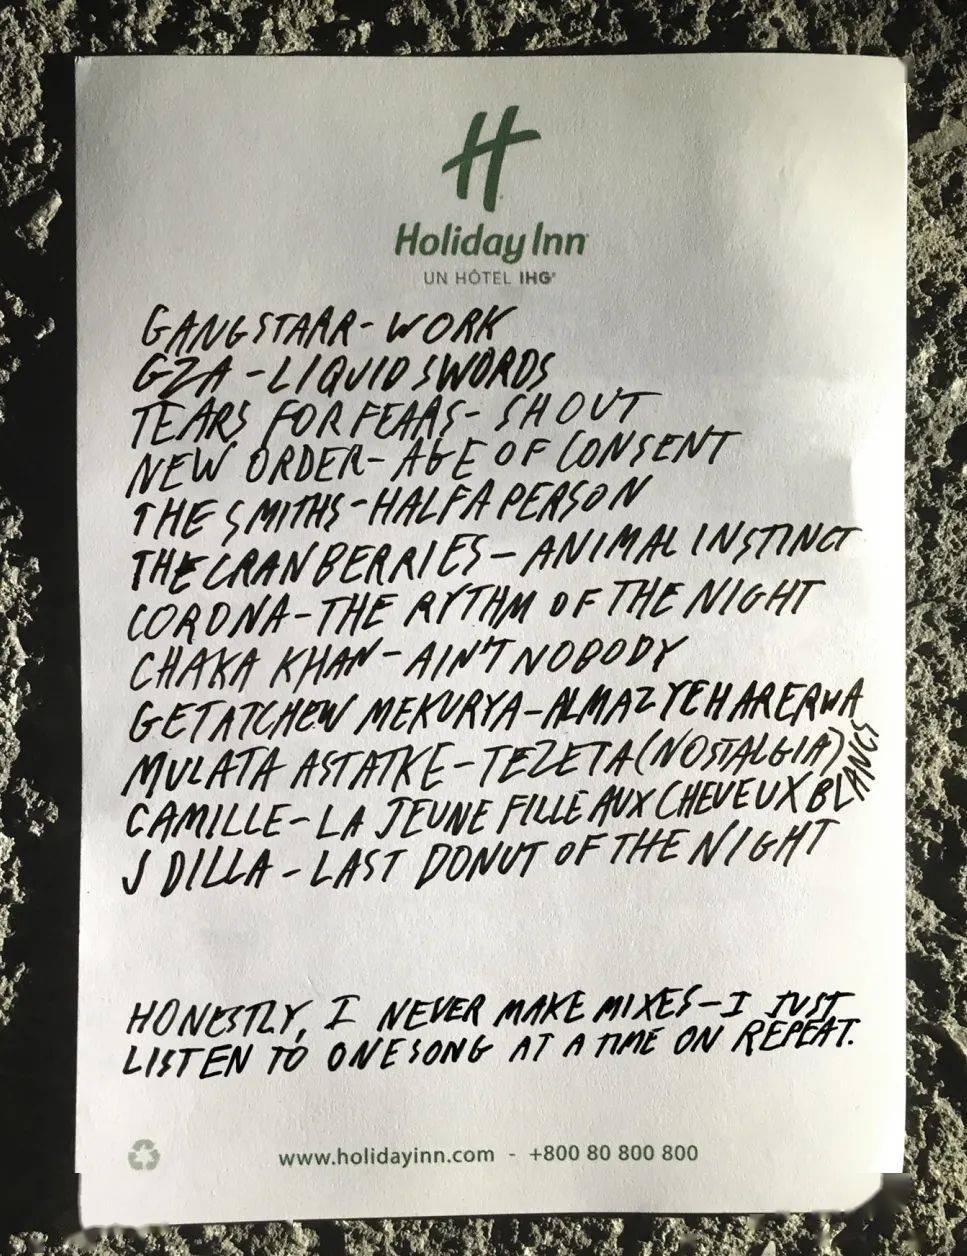 H
Holiday Inn
UN HÔTEL IHG®
GANGSTARR - WORK
GZA - LIQUID SWORDS
TEARS FOR FEARS - SHOUT
NEW ORDER - AGE OF CONSENT
THE SMITHS - HALF A PERSON
THE CRANBERRIES - ANIMAL INSTINCT
CORONA - THE RYTHM OF THE NIGHT
CHAKA KHAN - AIN'T NOBODY
GETATCHEW MEKURYA - ALMAZ YEHARERWA
MULATA ASTATKE - TEZETA (NOSTALGIA)
CAMILLE - LA JEUNE FILLE AUX CHEVEUX BLANCS
J DILLA - LAST DONUT OF THE NIGHT
HONESTLY, I NEVER MAKE MIXES - I JUST
LISTEN TO ONE SONG AT A TIME ON REPEAT.
www.holidayinn.com - +800 80 800 800